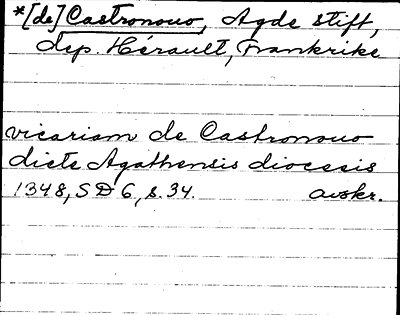 *[de] Castronouo, Agde stift,
dep. Hérault, Frankrike
vicariam de Castronouo
dicte Agathensis diocesis
1348, SD 6, s. 34. avskr.